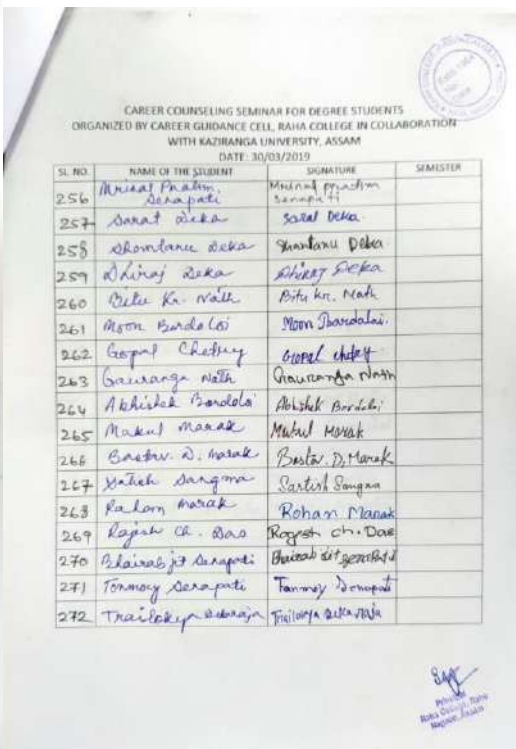 CAREER COUNSELING SEMINAR FOR DEGREE STUDENTS
ORGANIZED BY CAREER GUIDANCE CELL, RAHA COLLEGE IN COLLABORATION
WITH KAZIRANGA UNIVERSITY, ASSAM
DATE: 30/03/2019
SL. NO. NAME OF THE STUDENT SIGNATURE SEMESTER
256 Mrinal Pratim Senapati Mrinal pratim Senapati
257 Sarat Deka Sarat Deka
258 Shantanu Deka Shantanu Deka
259 Dhiraj Deka Dhiraj Deka
260 Bitu Kr. Nath Bitu Kr. Nath
261 Moon Bordoloi Moon Bardalai.
262 Gopal Chetry Gopal chetry
263 Gauranga Nath Gauranga Nath
264 Abhishek Bordoloi Abhishek Bordoloi
265 Makul Marak Mukul Marak
266 Bastav. D. Marak Bastav. D, Marak
267 Satish Sangma Sartish Sangma
268 Marak Rohan Marak
269 Rajesh Ch. Das Rogesh ch. Das
270 Bhairabjit Senapati Bhairab Jit
271 Tonmoy Senapati Tanmoy Senapati
272 Trailokya Dekaraja Trailokya Deka Raja
Principal
Raha College, Raha
Nagaon, Assam